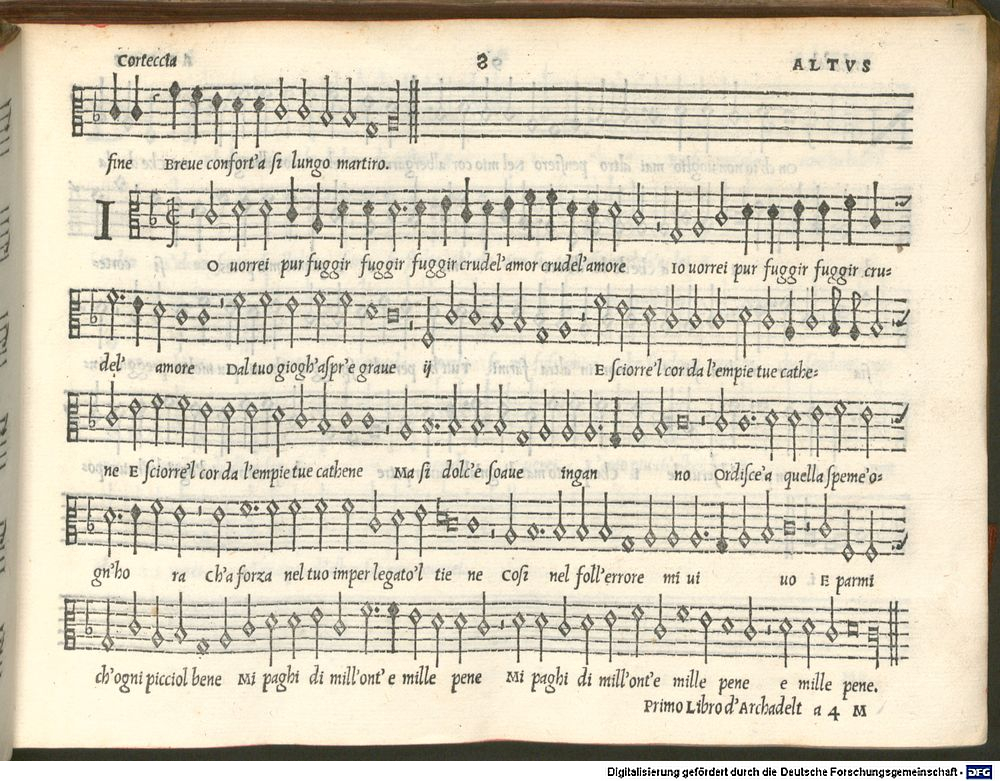 Corteccia 8 ALTVS
fine Breue confort'a si lungo martiro.
I
O uorrei pur fuggir fuggir fuggir crudel'amor crudel'amore Io uorrei pur fuggir fuggir cru=
del' amore Dal tuo giogh'aspr'e graue ij E sciorre'l cor da l'empie tue cathe=
ne E sciorre'l cor da l'empie tue cathene Ma si dolc'e soaue ingan no Ordisce'a quella speme'o=
gn'ho ra Ch'a forza nel tuo imper legato'l tie ne Cosi nel foll'errore mi ui uo E parmi
ch'ogni picciol bene Mi paghi di mill'ont'e mille pene Mi paghi di mill'ont'e mille pene e mille pene.
Primo Libro d'Archadelt a 4 M
Digitalisierung gefördert durch die Deutsche Forschungsgemeinschaft - DFG